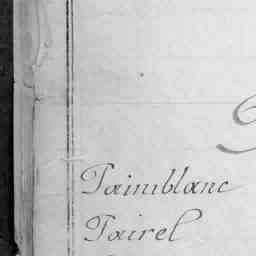 Painiblanc
Pairel